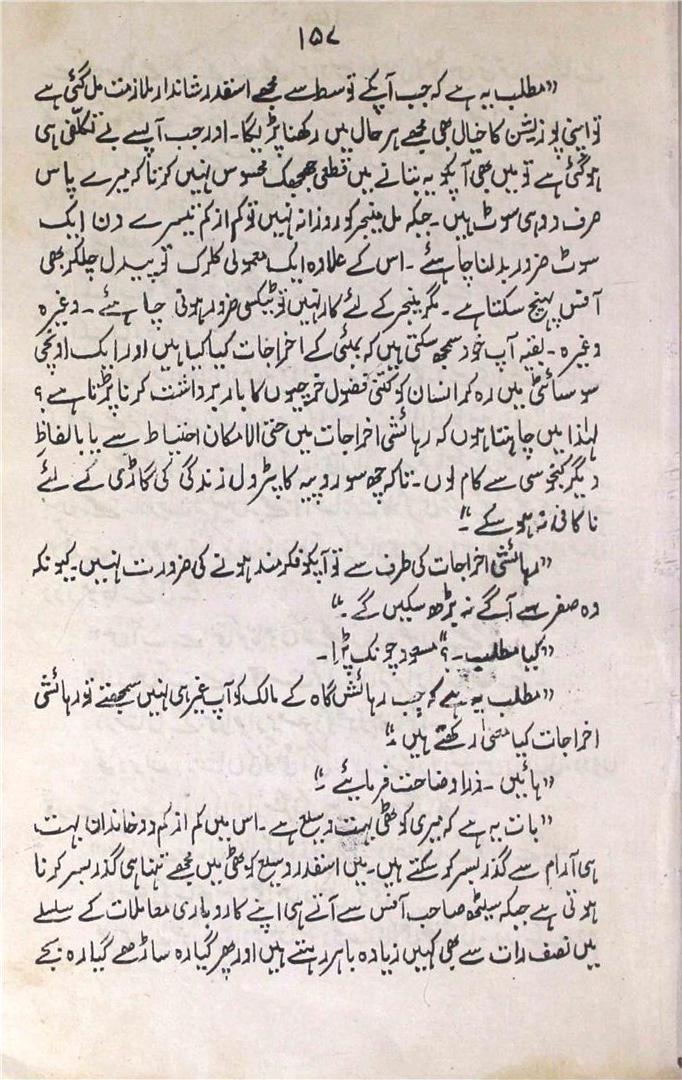 ۱۵۷
”مطلب یہ ہے کہ جب آپکے توسط سے مجھے اسقدر شاندار ملازمت مل گئی ہے
تو اپنی پوزیشن کا خیال بھی مجھے ہر حال میں رکھنا پڑیگا۔ اور جب آپسے بے تکلّفی ہی
ہو گئی ہے تو میں بھی آپکو یہ بتانے میں قطعی جھجک محسوس نہیں کرتا کہ میرے پاس
صرف دو ہی سوٹ ہیں۔ جبکہ مل منیجر کو روزانہ نہیں تو کم از کم تیسرے دن ایک
سوٹ ضرور بدلنا چاہئے۔ اس کے علاوہ ایک معمولی کلرک تو پیدل چلکر بھی
آفس پہنچ سکتا ہے۔ مگر منیجر کے لئے کار نہیں تو ٹیکسی ضرور ہوتی چاہئے۔ وغیرہ
وغیرہ۔ بقیہ آپ خود سمجھ سکتی ہیں کہ بمبئی کے اخراجات کیا کیا ہیں اور ایک اونچی
سوسائٹی میں رہ کر انسان کو کتنی فضول خرچیوں کا بار برداشت کرنا پڑتا ہے؟
لہٰذا میں چاہتا ہوں کہ رہائشی اخراجات میں حتی الامکان احتیاط سے یا بالفاظِ
دیگر کنجوسی سے کام لوں۔ تاکہ چھ سو روپیہ کا پٹرول زندگی کی گاڑی کے لئے
ناکافی نہ ہو سکے۔“
”رہائشی اخراجات کی طرف سے تو آپکو فکرمند ہونے کی ضرورت نہیں۔ کیونکہ
وہ صفر سے آگے نہ بڑھ سکیں گے۔“
”کیا مطلب۔؟“ مسعود چونک پڑا۔
”مطلب یہ ہے کہ جب رہائش گاہ کے مالک کو آپ غیر ہی نہیں سمجھتے تو رہائشی
اخراجات کیا معنی رکھتے ہیں۔“
”ہائیں۔ ذرا وضاحت فرمایئے۔“
”بات یہ ہے کہ میری کوٹھی بہت وسیع ہے۔ اس میں کم از کم دو خاندان بہت
ہی آرام سے گذر بسر کر سکتے ہیں۔ پس اسقدر وسیع کوٹھی میں مجھے تنہا ہی گذر بسر کرنا
ہوتی ہے جبکہ سیٹھ صاحب آفس سے آتے ہی اپنے کاروباری معاملات کے سلسلے
میں نصف رات سے بھی کہیں زیادہ باہر رہتے ہیں اور پھر گیارہ ساڑھے گیارہ بجے